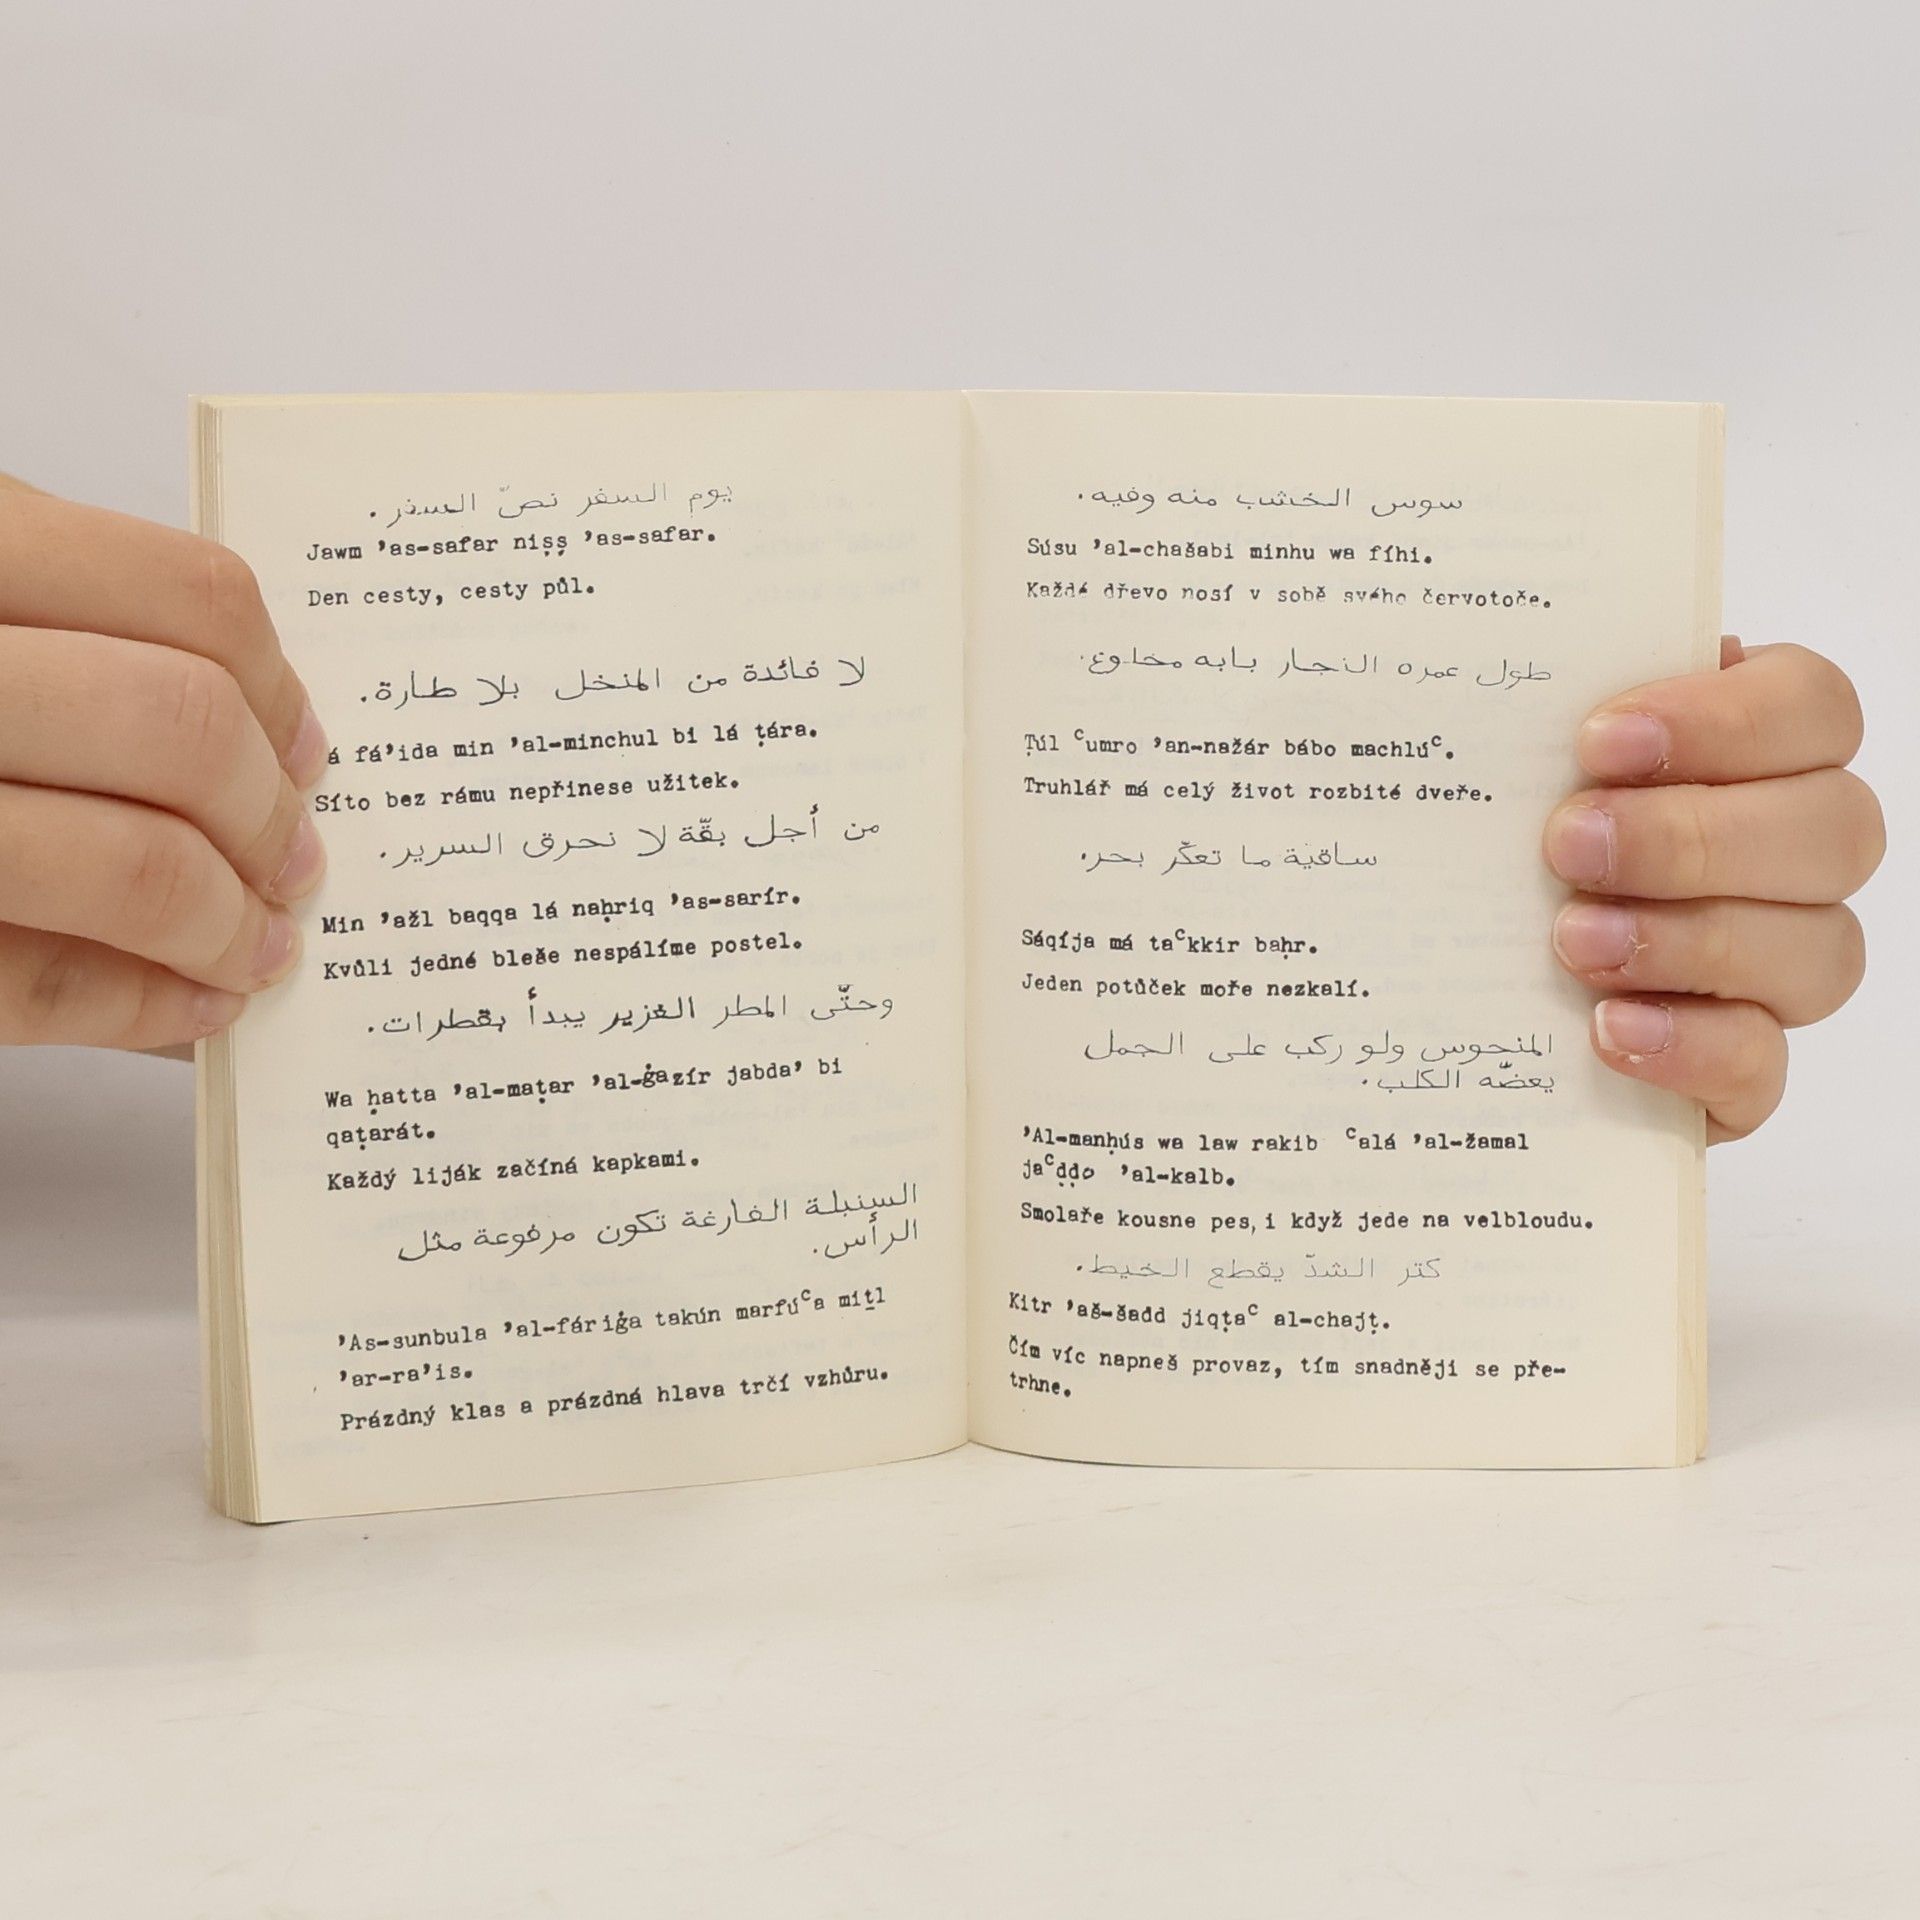 يوم السفر نصّ السفر.
Jawm ’as-safar niṣṣ ’as-safar.
Den cesty, cesty půl.
لا فائدة من المنخل بلا طارة.
á fá’ida min ’al-minchul bi lá ṭára.
Síto bez rámu nepřinese užitek.
من أجل بقّة لا نحرق السرير.
Min ’ažl baqqa lá naḥriq ’as-sarír.
Kvůli jedné bleše nespálíme postel.
وحتّى المطر الغزير يبدأ بقطرات.
Wa ḥatta ’al-maṭar ’al-ġazír jabda’ bi
qaṭarát.
Každý liják začíná kapkami.
السنبلة الفارغة تكون مرفوعة مثل
الرأس.
’As-sunbula ’al-fáriġa takún marfúᶜa miṯl
’ar-ra’is.
Prázdný klas a prázdná hlava trčí vzhůru.
سوس الخشب منه وفيه.
Súsu ’al-chašabi minhu wa fíhi.
Každé dřevo nosí v sobě svého červotoče.
طول عمره النجار بابه مخلوع.
Ṭúl ᶜumro ’an-nažár bábo machlúᶜ.
Truhlář má celý život rozbité dveře.
ساقية ما تعكّر بحر.
Sáqíja má taᶜkkir baḥr.
Jeden potůček moře nezkalí.
المنحوس ولو ركب على الجمل
يعضّه الكلب.
’Al-manḥús wa law rakib ᶜalá ’al-žamal
jaᶜḍḍo ’al-kalb.
Smolaře kousne pes, i když jede na velbloudu.
كتر الشدّ يقطع الخيط.
Kitr ’aš-šadd jiqṭaᶜ al-chajṭ.
Čím víc napneš provaz, tím snadněji se pře-
trhne.